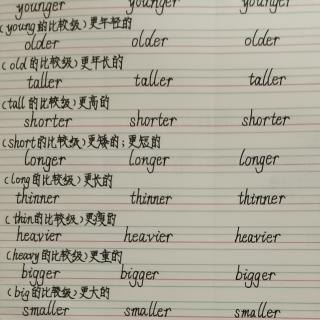 younger younger younger
(young的比较级)更年轻的
older older older
(old的比较级)更年长的
taller taller taller
(tall的比较级)更高的
shorter shorter shorter
(short的比较级)更矮的;更短的
longer longer longer
(long的比较级)更长的
thinner thinner thinner
(thin的比较级)更瘦的
heavier heavier heavier
(heavy的比较级)更重的
bigger bigger bigger
(big的比较级)更大的
smaller smaller smaller